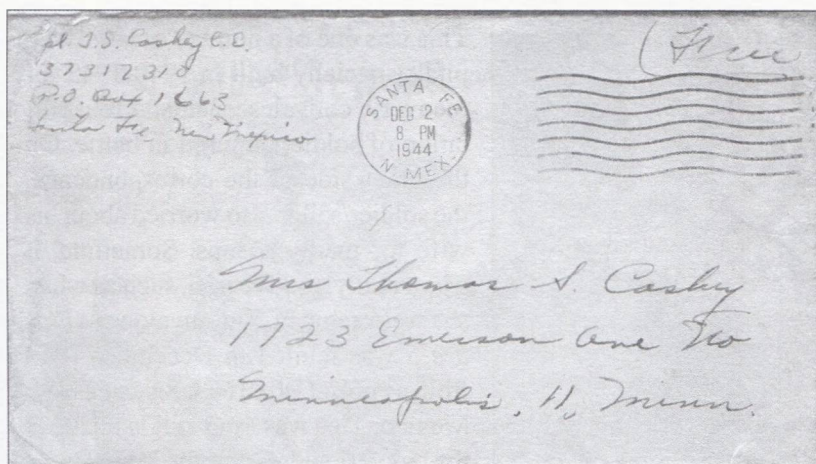 T.S. Caskey
37317310
P.O. Box 1663
Santa Fe New Mexico
Free
SANTA FE
DEC 2
8 PM
1944
N. MEX.
Mrs Thomas S. Caskey
1723 Emerson Ave No
Minneapolis, 11, Minn.